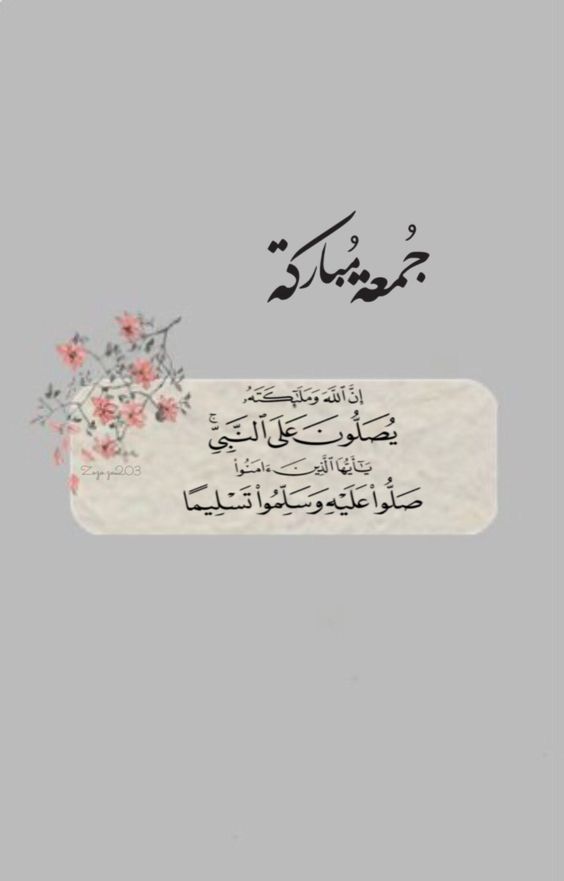 جُمعة مُباركة
إِنَّ ٱللَّهَ وَمَلَـٰٓئِكَتَهُۥ
يُصَلُّونَ عَلَى ٱلنَّبِىِّۚ
يَـٰٓأَيُّهَا ٱلَّذِينَ ءَامَنُوا۟
صَلُّوا۟ عَلَيْهِ وَسَلِّمُوا۟ تَسْلِيمًا